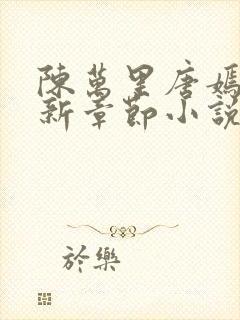 陳萬里唐嫣
新章節小說
於樂